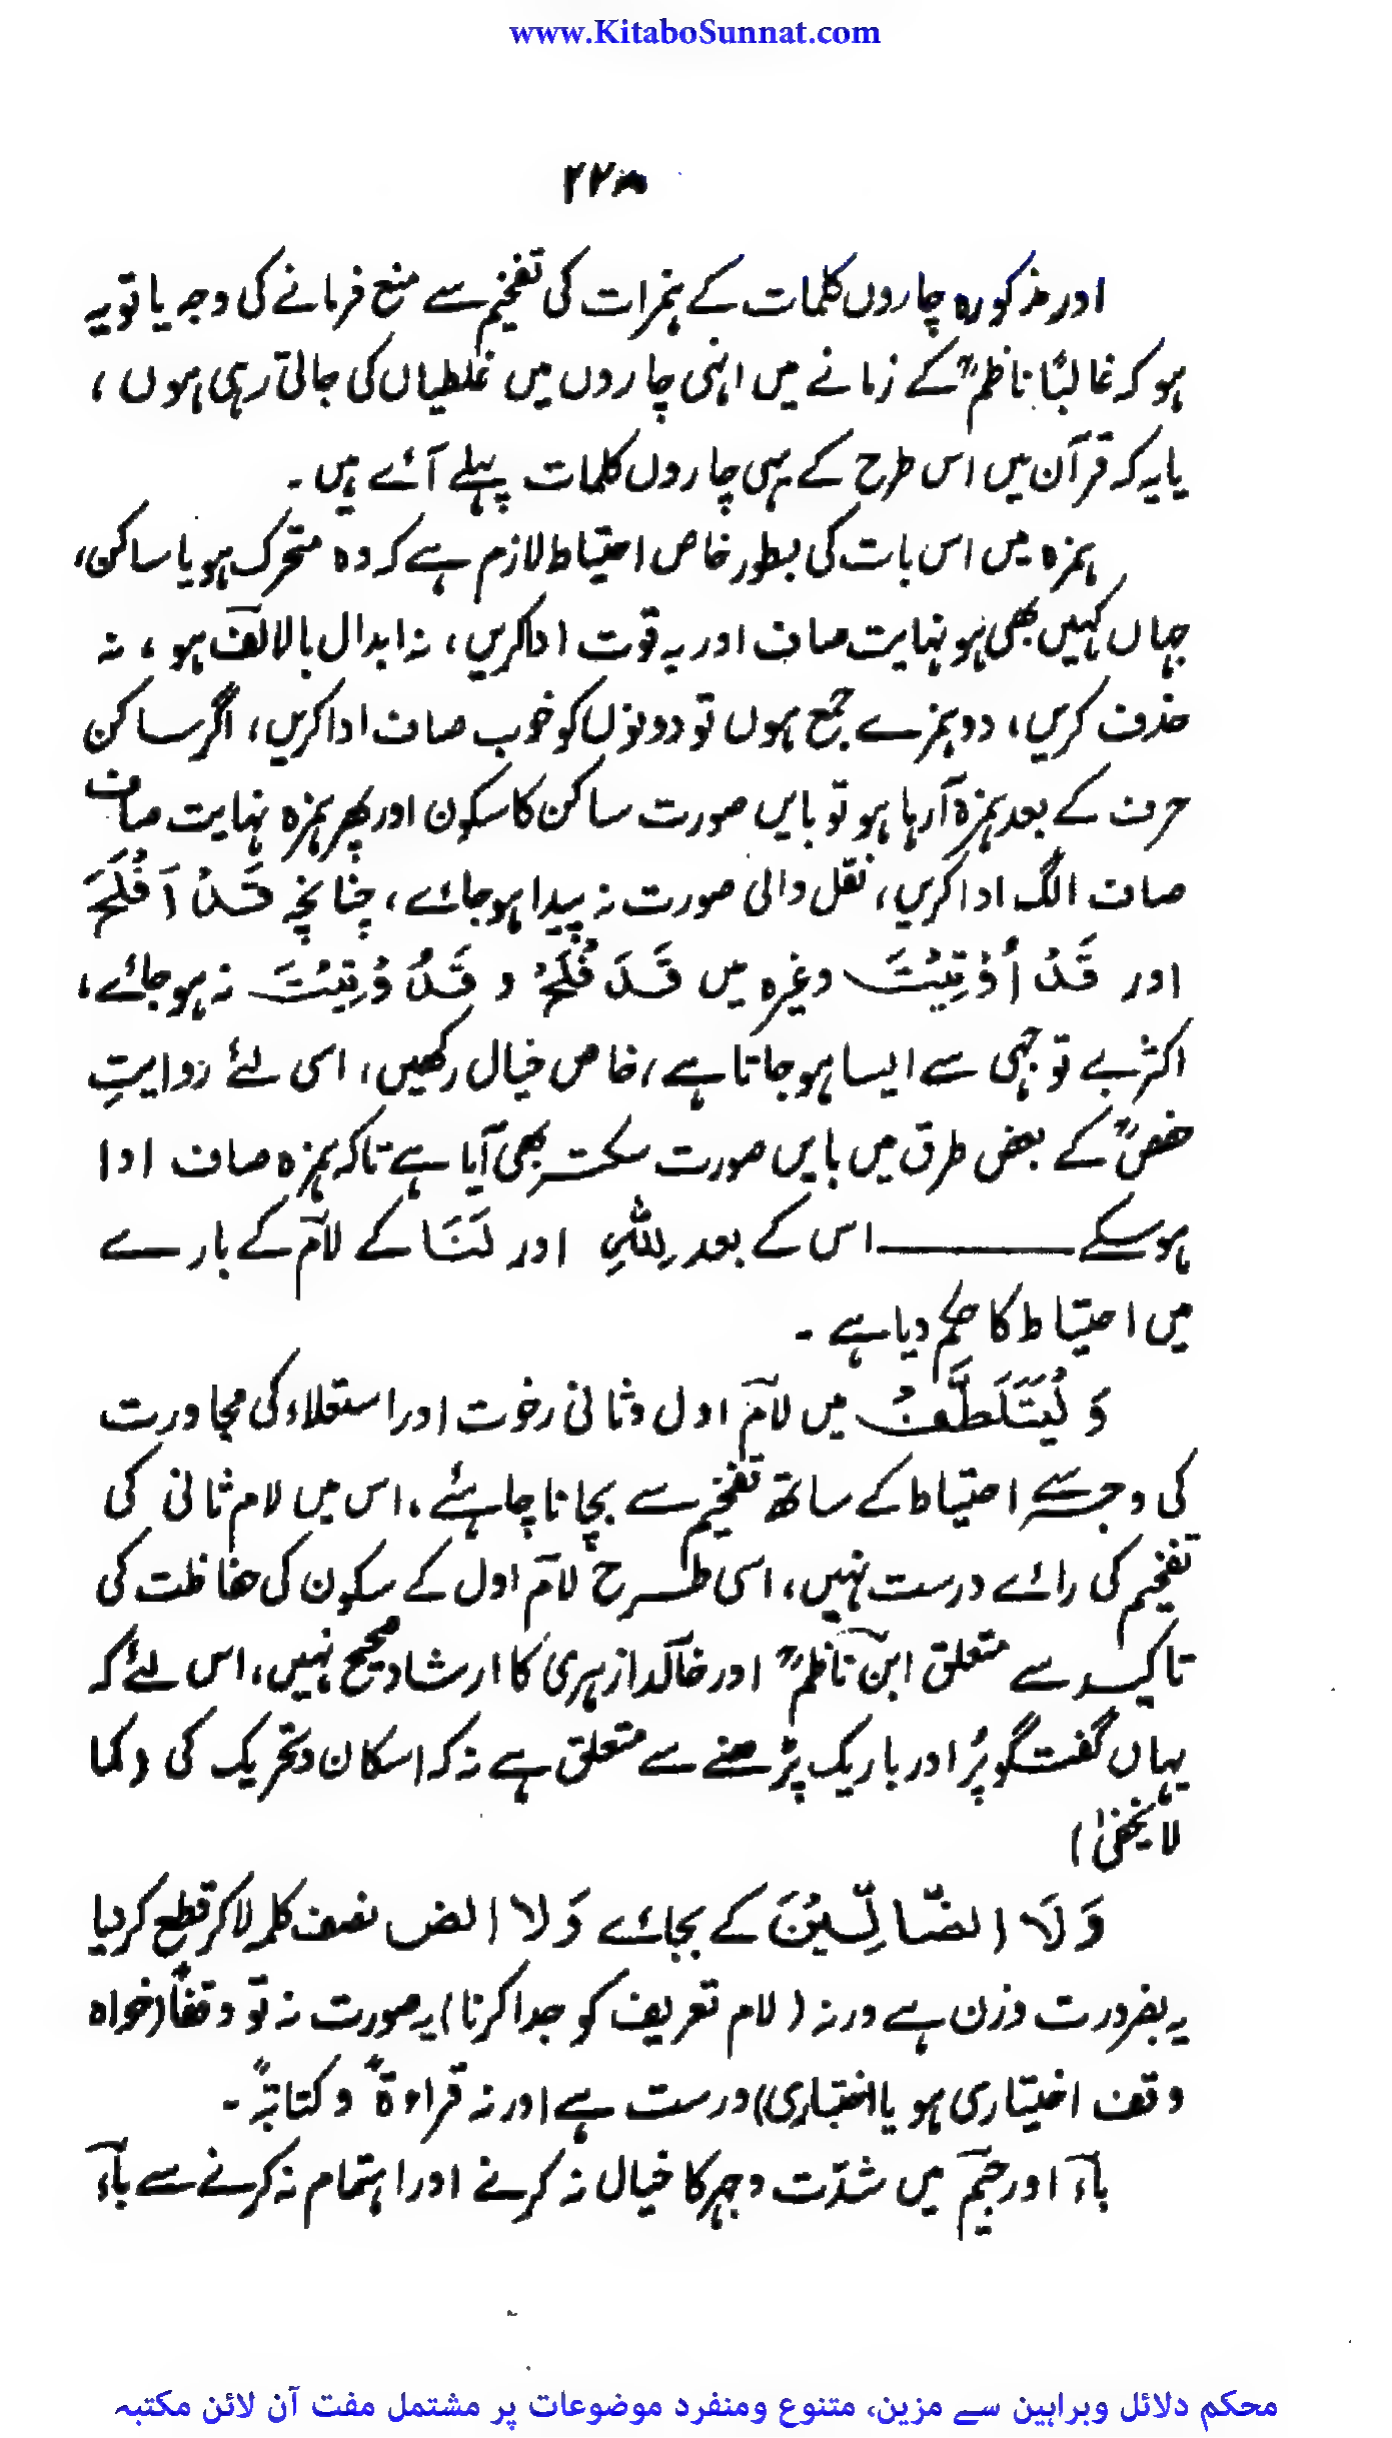 www.KitaboSunnat.com
۲۲۸
اور مذکورہ چاروں کلمات کے ہمزات کی تفخیم سے منع فرمانے کی وجہ یا تو یہ
ہو کہ غالبًا ناظمؒ کے زمانے میں انہی چاروں میں غلطیاں کی جاتی رہی ہوں،
یا یہ کہ قرآن میں اس طرح کے یہی چاروں کلمات پہلے آئے ہیں۔
ہمزہ میں اس بات کی بطور خاص احتیاط لازم ہے کہ وہ متحرک ہو یا ساکن،
جہاں کہیں بھی ہو نہایت صاف اور بہ قوت ادا کریں، نہ ابدال بالالف ہو، نہ
حذف کریں، دو ہمزے جمع ہوں تو دونوں کو خوب صاف ادا کریں، اگر ساکن
حرف کے بعد ہمزہ آرہا ہو تو بایں صورت ساکن کا سکون اور پھر ہمزہ نہایت صاف
صاف الگ ادا کریں، نقل والی صورت نہ پیدا ہو جائے، چنانچہ قَدْ اَفْلَحَ
اور قَدْ اُوْتِیْتَ وغیرہ میں قَدَ فْلَحَ و قَدُ وْتِیْتَ نہ ہو جائے،
اکثر بے توجہی سے ایسا ہو جاتا ہے، خاص خیال رکھیں، اسی لئے روایتِ
حفصؒ کے بعض طرق میں بایں صورت سکتہ بھی آیا ہے تاکہ ہمزہ صاف ادا
ہو سکے ــــــــ اس کے بعد لِلّٰہِ اور لَنَا کے لام کے بارے
میں احتیاط کا حکم دیا ہے۔
وَلْیَتَلَطَّفْ میں لام اول و ثانی رخوت اور استعلاء کی مجاورت
کی وجہ سے احتیاط کے ساتھ تفخیم سے بچانا چاہئے، اس میں لام ثانی کی
تفخیم کی رائے درست نہیں، اسی طرح لام اول کے سکون کی حفاظت کی
تاکید سے متعلق ابن ناظمؒ اور خالد ازہری کا ارشاد صحیح نہیں، اس لئے کہ
یہاں گفتگو پُر اور باریک پڑھنے سے متعلق ہے نہ کہ اسکان و تحریک کی (کما
لا یخفیٰ)
وَلَا الضَّالِّیْنَ کے بجائے وَلَا الض نصف کلمہ لاکر قطع کردیا
یہ بضرورت وزن ہے ورنہ (لام تعریف کو جدا کرنا) یہ صورت نہ تو وقفًا (خواہ
وقف اختیاری ہو یا اختباری) درست ہے اور نہ قراءۃً و کتابۃً۔
باء اور جیم میں شدّت و جہر کا خیال نہ کرنے اور اہتمام نہ کرنے سے باء
محکم دلائل وبراہین سے مزین، متنوع ومنفرد موضوعات پر مشتمل مفت آن لائن مکتبہ